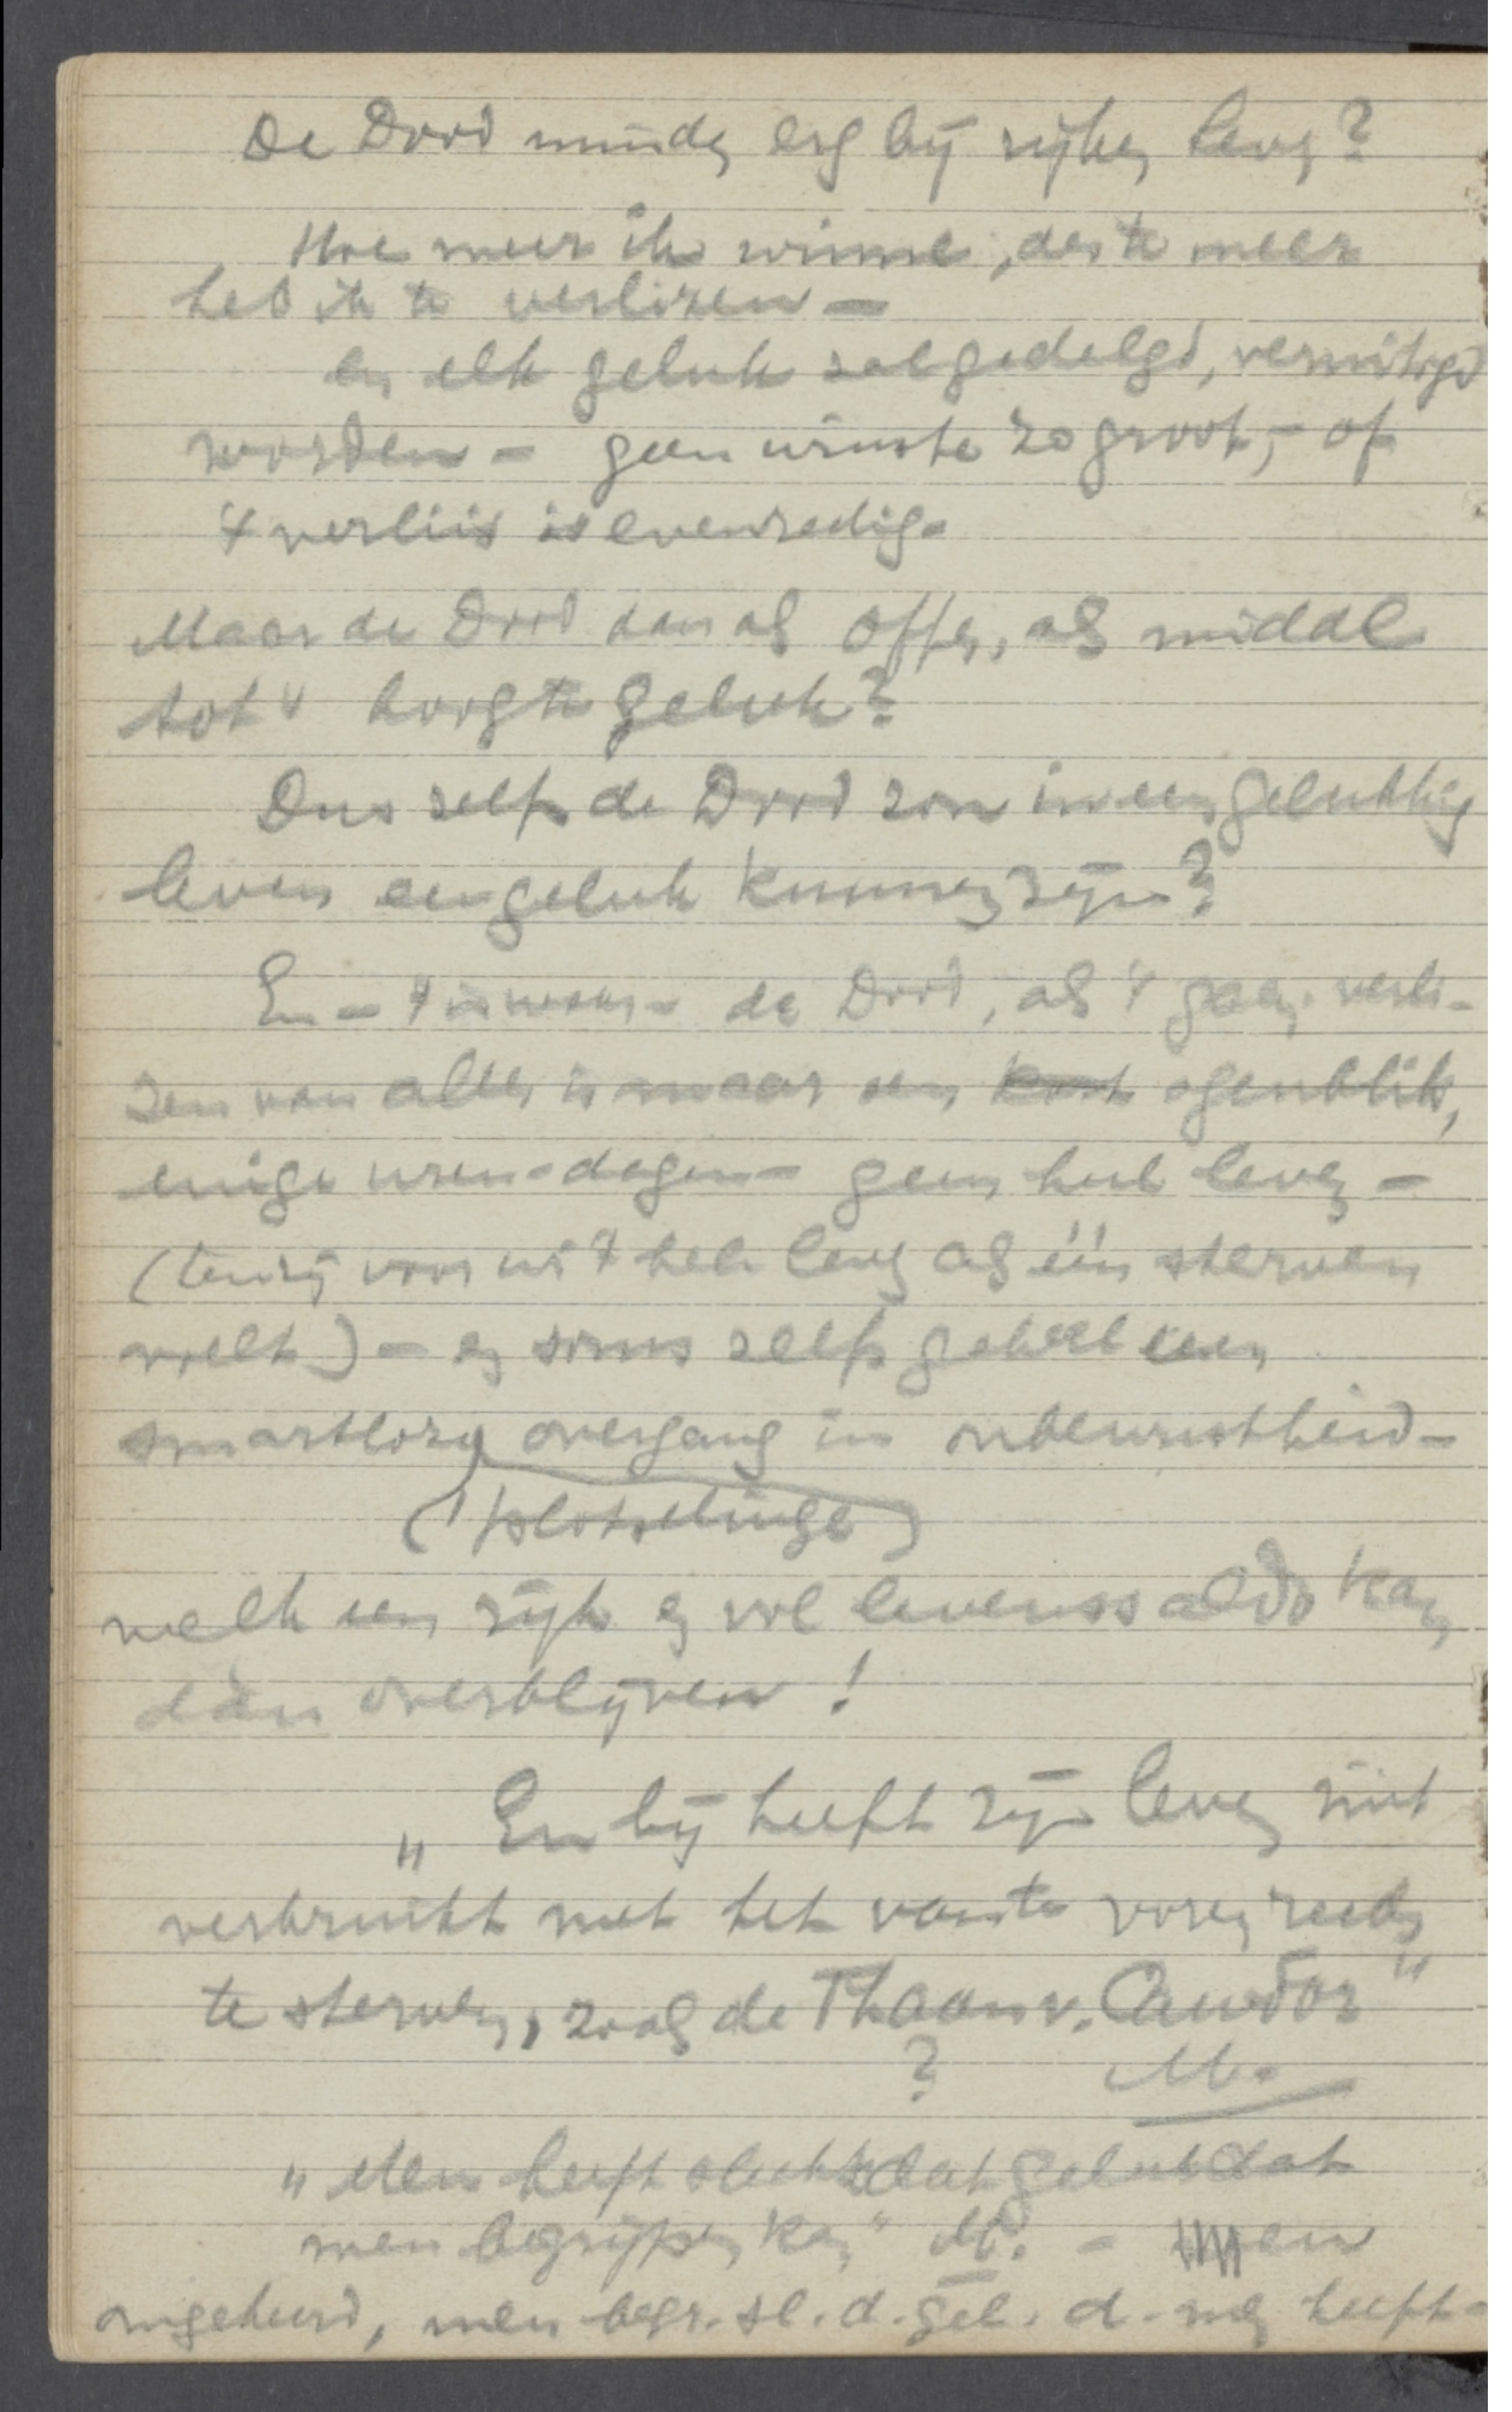 De Dood minder erg bij rijker leven?
Hoe meer ik winne, des te meer
heb ik te verlizen –
en elk geluk zal gedelgd, vernietigd
worden – geen winste zo groot, – of
't verlies is evenredig.
Maar de Dood dan als offer, als middel
tot 't hoogste geluk?
Dus zelfs de Dood zou in een gelukkig
leven een geluk kunnen zijn?
En – 't is waar – de Dood, als 't gaan verlie-
zen van alles is maar een kort ogenblik,
enige uren – dagen – geen heel leven –
(tenzij voor wie 't hele leven als één sterven
voelt) – en soms zelfs geheel een
smartloze overgang in onbewustheid –
(plotselinge)
welk een rijk en vol levenssaldo kan
dan overblijven!
„En hij heeft zijn leven niet
verbruikt met het van te voren reeds
te sterven, zoals de Thaan v. Cawdor"
? M.
„Men heeft slechts dat geluk dat
men begrijpen kan" M. – en
omgekeerd, men begr. sl. d. gel. d. men heeft –